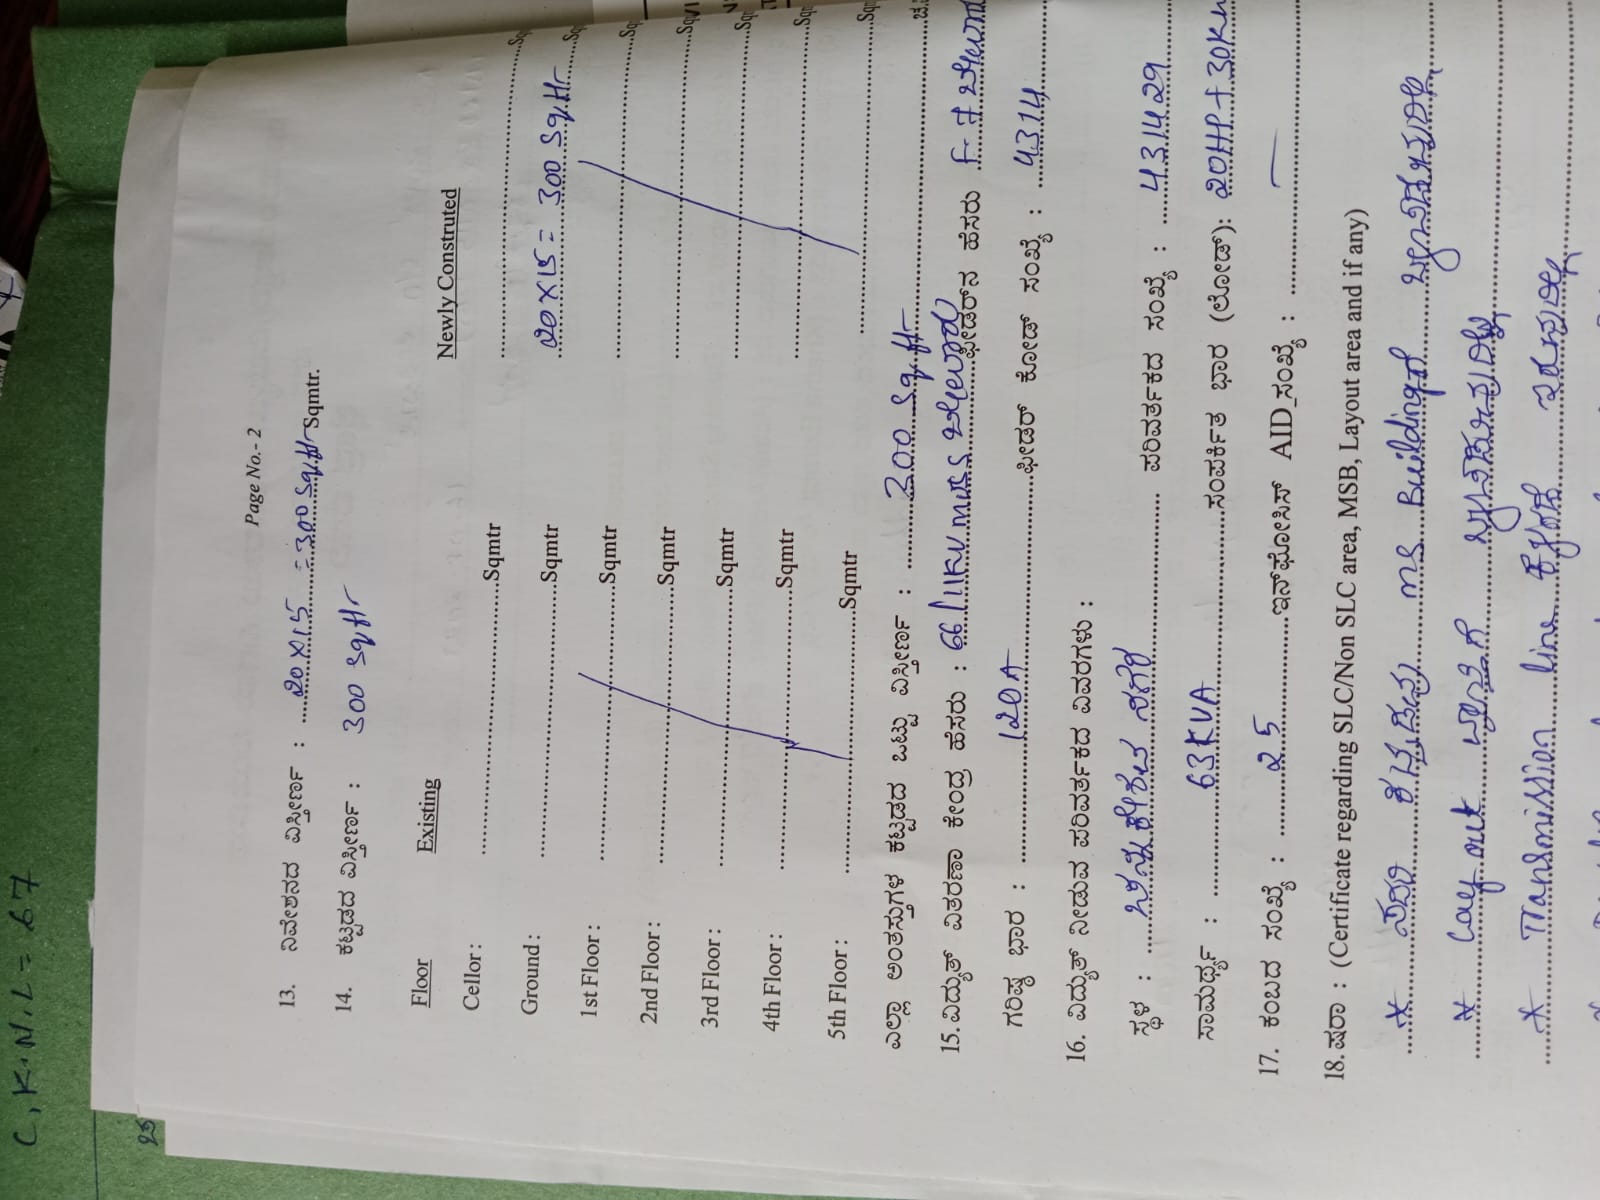 C, K.N.L = 67
Page No.- 2
13. ನಿವೇಶನದ ವಿಸ್ತೀರ್ಣ : 20 X15 = 300 sqft Sqmtr.
14. ಕಟ್ಟಡದ ವಿಸ್ತೀರ್ಣ : 300 sqft
Floor Existing Newly Constructed
Cellor : Sqmtr
Ground : Sqmtr 20 X15 = 300 sqft
1st Floor : Sqmtr
2nd Floor : Sqmtr
3rd Floor : Sqmtr
4th Floor : Sqmtr
5th Floor : Sqmtr
ಎಲ್ಲಾ ಅಂತಸ್ತುಗಳ ಕಟ್ಟಡದ ಒಟ್ಟು ವಿಸ್ತೀರ್ಣ : 300 sqft
15. ವಿದ್ಯುತ್ ವಿತರಣಾ ಕೇಂದ್ರ ಹೆಸರು : 66/11KV MUSS ಬೇಲೂರು ಫೀಡರ್‌ನ ಹೆಸರು F-7 ಬೇಲೂರು
ಗರಿಷ್ಠ ಭಾರ : 120A ಫೀಡರ್ ಕೋಡ್ ಸಂಖ್ಯೆ : 4314
16. ವಿದ್ಯುತ್ ನೀಡುವ ಪರಿವರ್ತಕದ ವಿವರಗಳು :
ಸ್ಥಳ : ಚನ್ನಕೇಶವ ನಗರ ಪರಿವರ್ತಕದ ಸಂಖ್ಯೆ : 431429
ಸಾಮರ್ಥ್ಯ : 63KVA ಸಂಪರ್ಕಿತ ಭಾರ (ಲೋಡ್): 20HP+30KW
17. ಕಂಬದ ಸಂಖ್ಯೆ : 25 ಇನ್‌ಫೋಸಿಸ್ AID_ಸಂಖ್ಯೆ : —
18. ಷರಾ : (Certificate regarding SLC/Non SLC area, MSB, Layout area and if any)
* ಸದರಿ ಕಟ್ಟಡವು MS Buildingಗೆ
* Lay out ವ್ಯಾಪ್ತಿಗೆ
* Transmission line ಕೆಳಗಡೆ